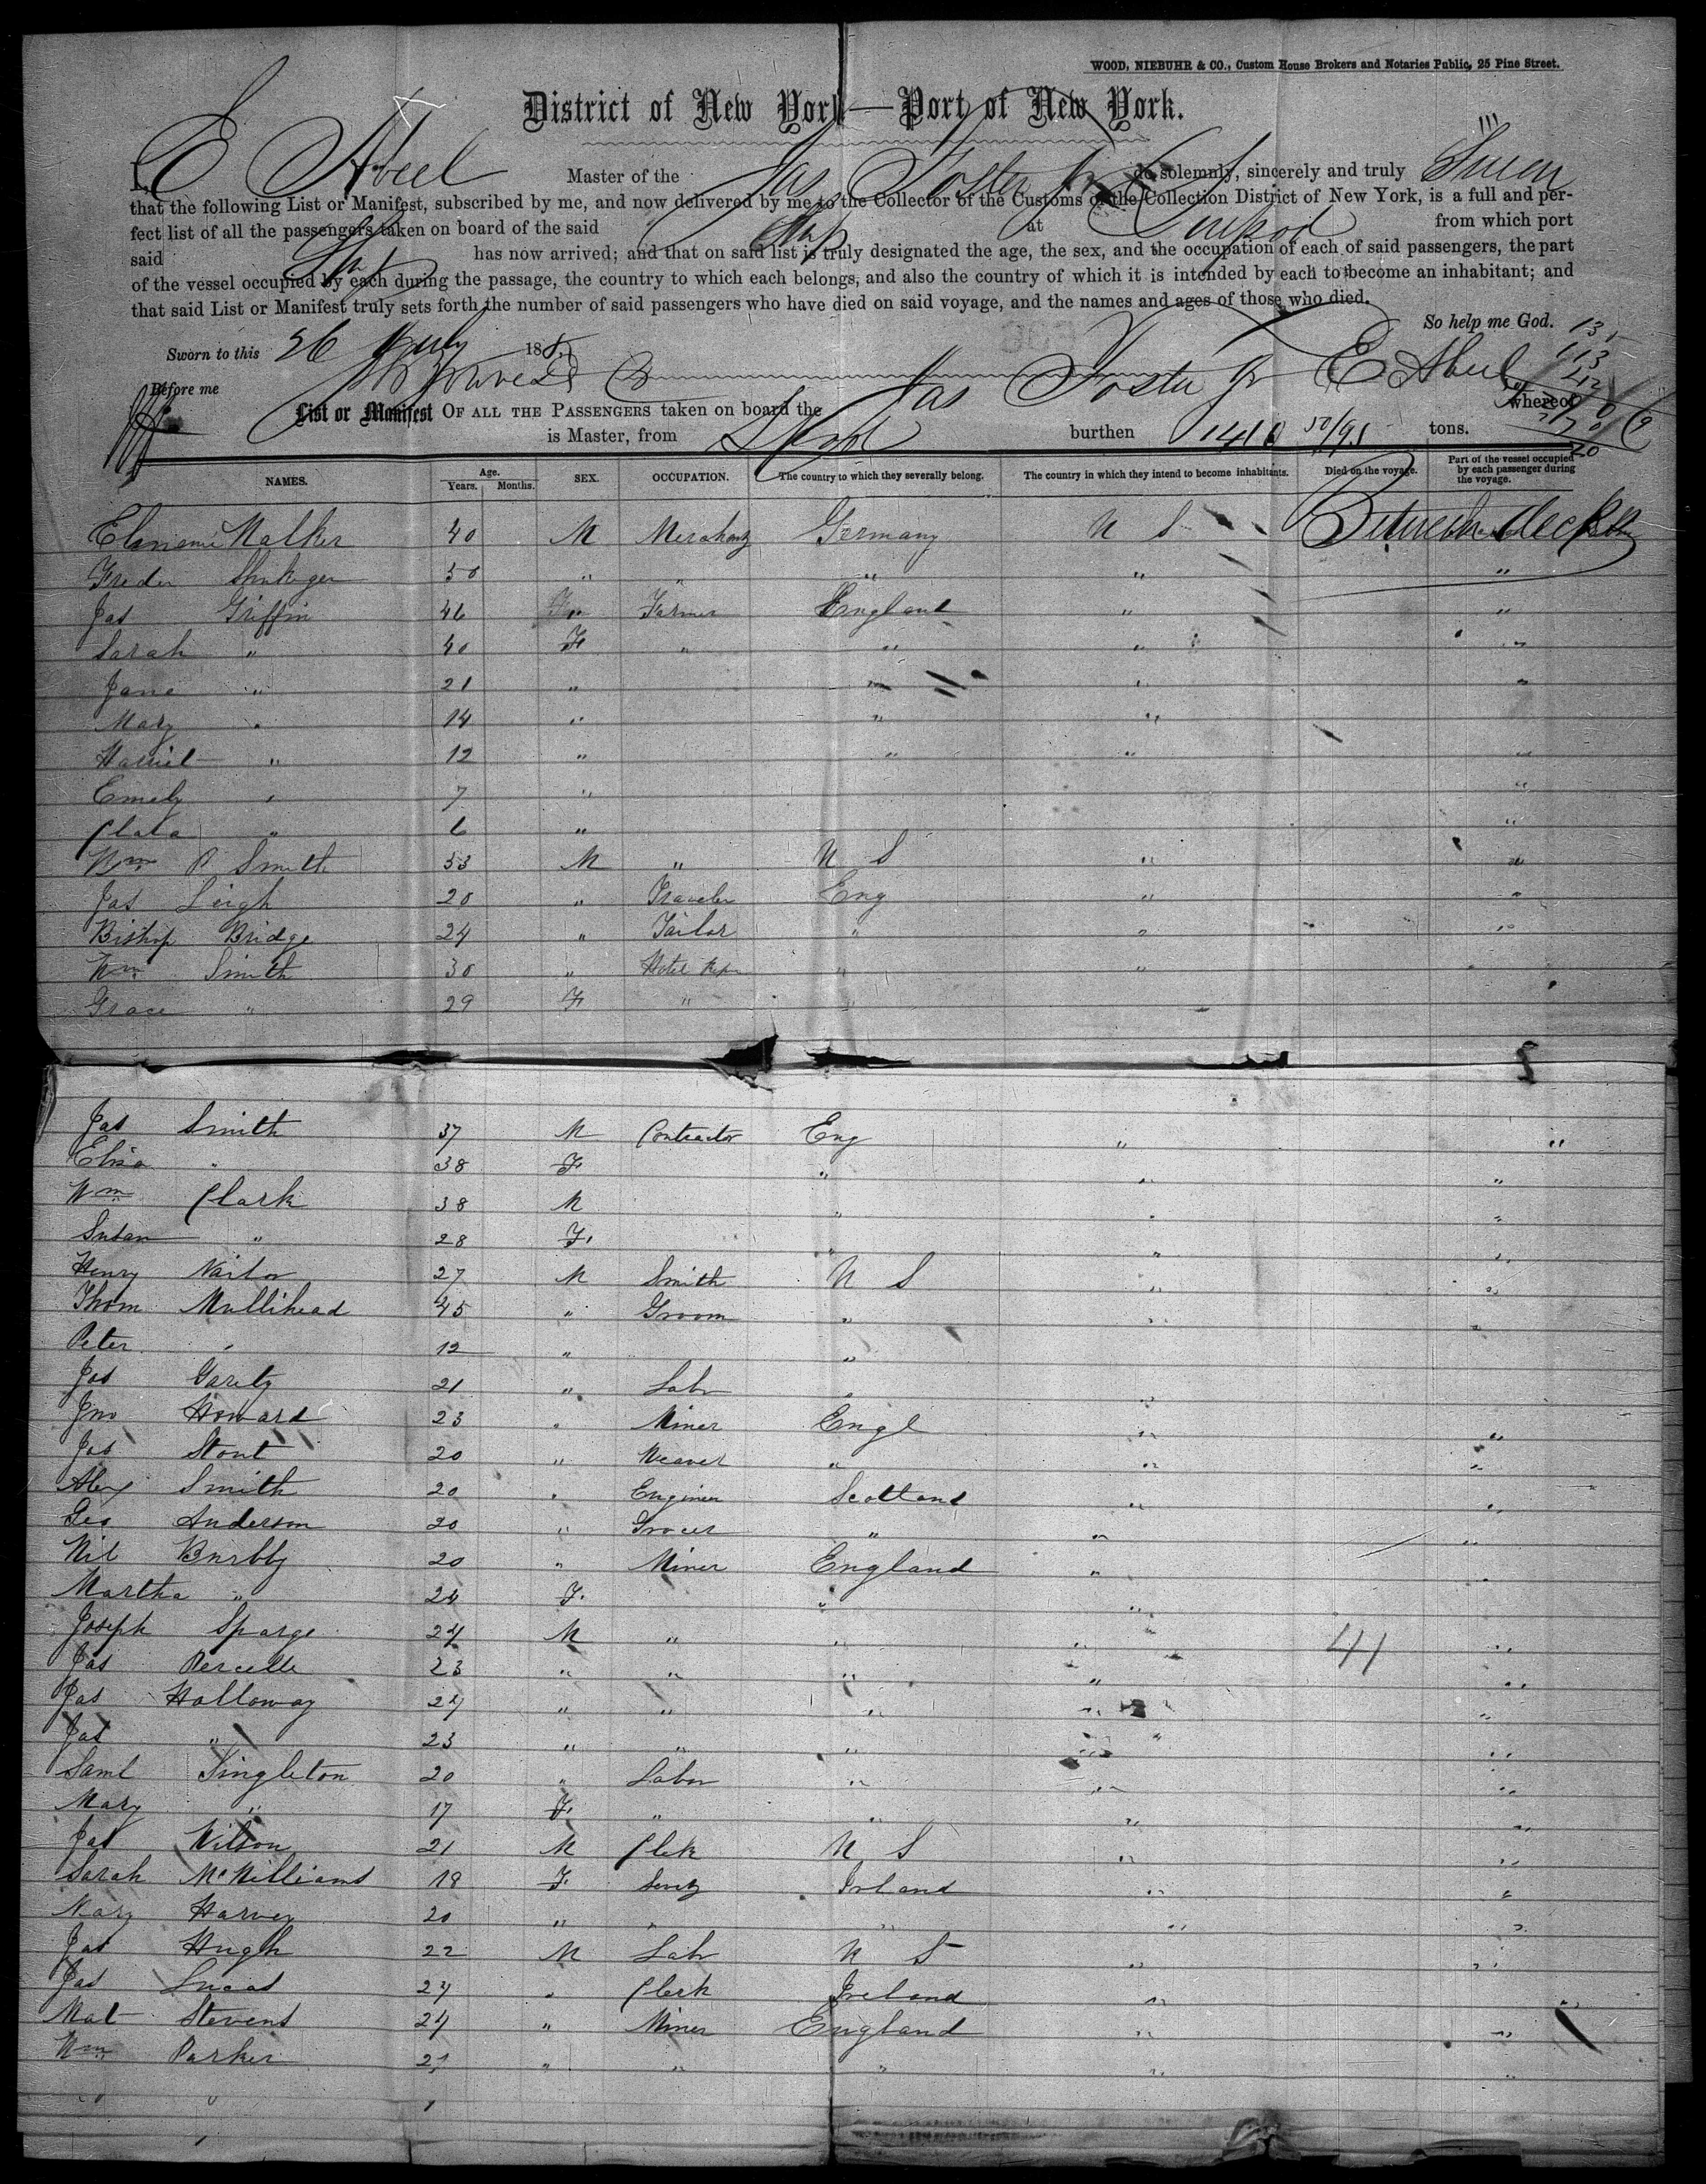 WOOD, NIEBUHR & CO., Custom House Brokers and Notaries Public, 25 Pine Street.
District of New York—Port of New York.
I, E Abeel Master of the Jas Foster Jr do solemnly, sincerely and truly Swear
that the following List or Manifest, subscribed by me, and now delivered by me to the Collector of the Customs of the Collection District of New York, is a full and per-
fect list of all the passengers taken on board of the said Ship at from which port
said Ship has now arrived; and that on said list is truly designated the age, the sex, and the occupation of each of said passengers, the part
of the vessel occupied by each during the passage, the country to which each belongs, and also the country of which it is intended by each to become an inhabitant; and
that said List or Manifest truly sets forth the number of said passengers who have died on said voyage, and the names and ages of those who died.
So help me God.
Sworn to this 26 July 18
Before me E Abeel
List or Manifest OF ALL THE PASSENGERS taken on board the Jas Foster Jr whereof
is Master, from burthen tons.
NAMES. Age. Years. Months. SEX. OCCUPATION. The country to which they severally belong. The country in which they intend to become inhabitants. Died on the voyage. Part of the vessel occupied by each passenger during the voyage.
Walker 40 M Germany U S Between decks
50 " " " " "
Jas Griffin 46 " Farmer England " "
Sarah " 40 F " " " "
Jane " 21 " " " "
Mary " 14 " " " "
Harriet " 12 " " " "
Emely " 7 " "
Clara " 6 " "
Wm P Smith 53 M " U S " "
Jas Leigh 20 " Traveler Eng " "
Bishop Bridge 24 " Tailor " " "
Wm Smith 30 " Hotel " " "
Grace " 29 F " "
Jas Smith 37 M Contractor Eng " "
Eliza " 38 F " " "
Wm Clark 38 M " " "
Susan " 28 F. " " "
Henry Nailor 27 M Smith U S " "
Thom Mullihead 45 " Groom " " "
Peter " 12 " "
Jas Garety 21 " Labr " "
Jno Howard 23 " Miner Engl " "
Jas Stout 20 " Weaver " " "
Alex Smith 20 " Engineer Scotland " "
Geo Anderson 20 " Grocer " " "
20 " Miner England " "
Martha " 24 F. " "
Joseph Sparge 24 M " " " 41 "
Jas 23 " " " " "
Jas Holloway 24 " " " " "
Jas " 23 " " " " "
Saml Singleton 20 " Labor " " "
Mary " 17 F. " " " "
Jas Wilson 21 M Clek U S " "
Sarah McWilliams 19 F Irland " "
Mary Harvey 20 " " " " "
Jas Hugh 22 M Labr U S " "
Jas Lucas 24 " Clerk Ireland " "
Mat Stevens 24 " Miner England " "
Wm Parker 21 " " " " "